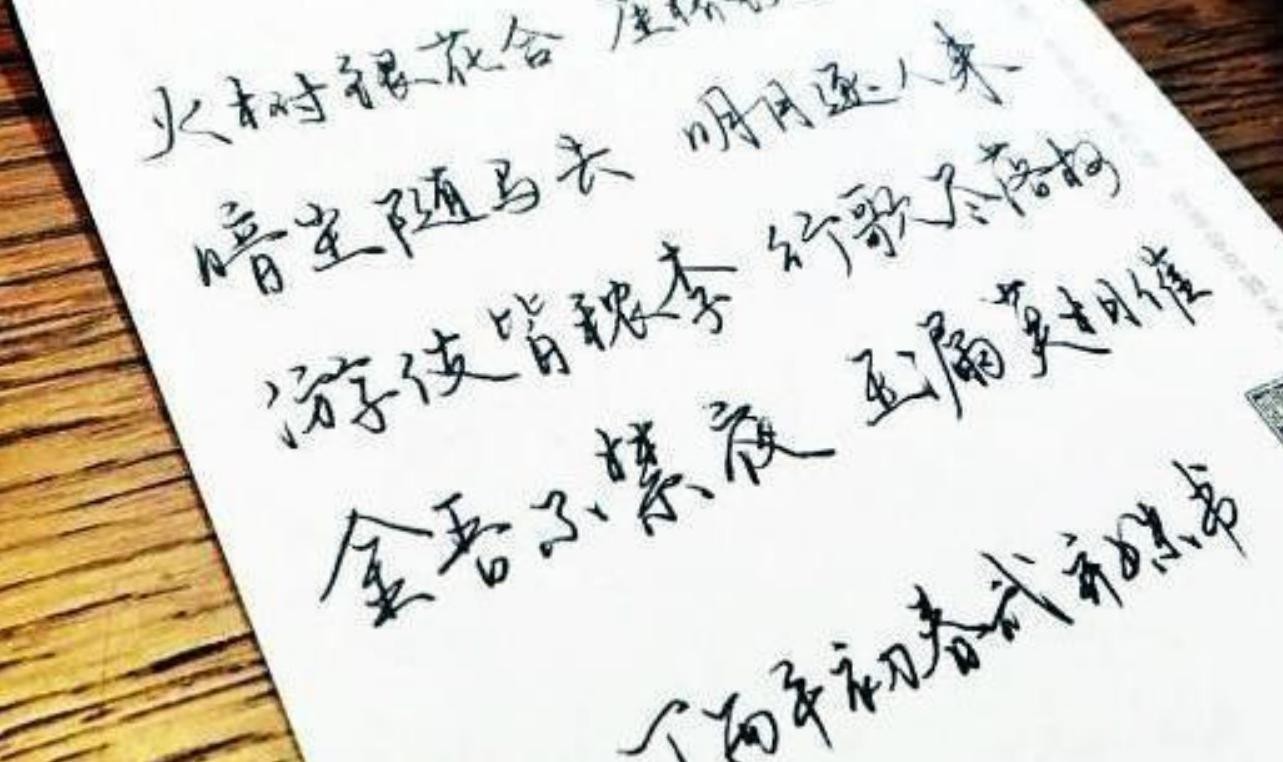 火树银花合 星桥
暗尘随马去 明月逐人来
游伎皆秾李 行歌尽落梅
金吾不禁夜 玉漏莫相催
丙申初春试新媒书